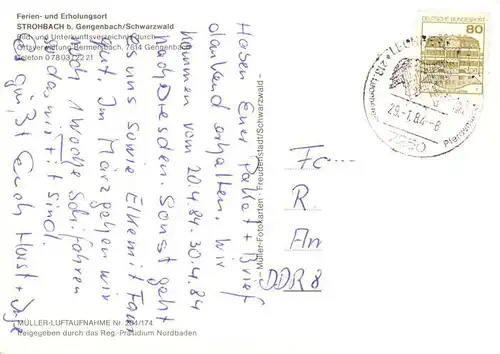 Ferien- und Erholungsort
STROHBACH b. Gengenbach/Schwarzwald
Bild- und Unterkunftsverzeichnis durch
Ortsverwaltung Bermersbach, 7614 Gengenbach
Telefon 07803/2221
Haben Euer Paket + Brief
dankend erhalten. Wir
kommen vom 20.4.84-30.4.84
nach Dresden. Sonst geht
es uns sowie Elke mit Fam
gut. Im März gehen wir
noch 1 Woche Schifahren
so das wir fit sind.
Es grüßt Euch Horst +
MÜLLER-LUFTAUFNAHME Nr. 204/174
freigegeben durch das Reg.-Präsidium Nordbaden
– Müller-Fotokarten · Freudenstadt/Schwarzwald –
DEUTSCHE BUNDESPOST
80
29.-1.84-8
7250
Fc....
R.
An
DDR 8